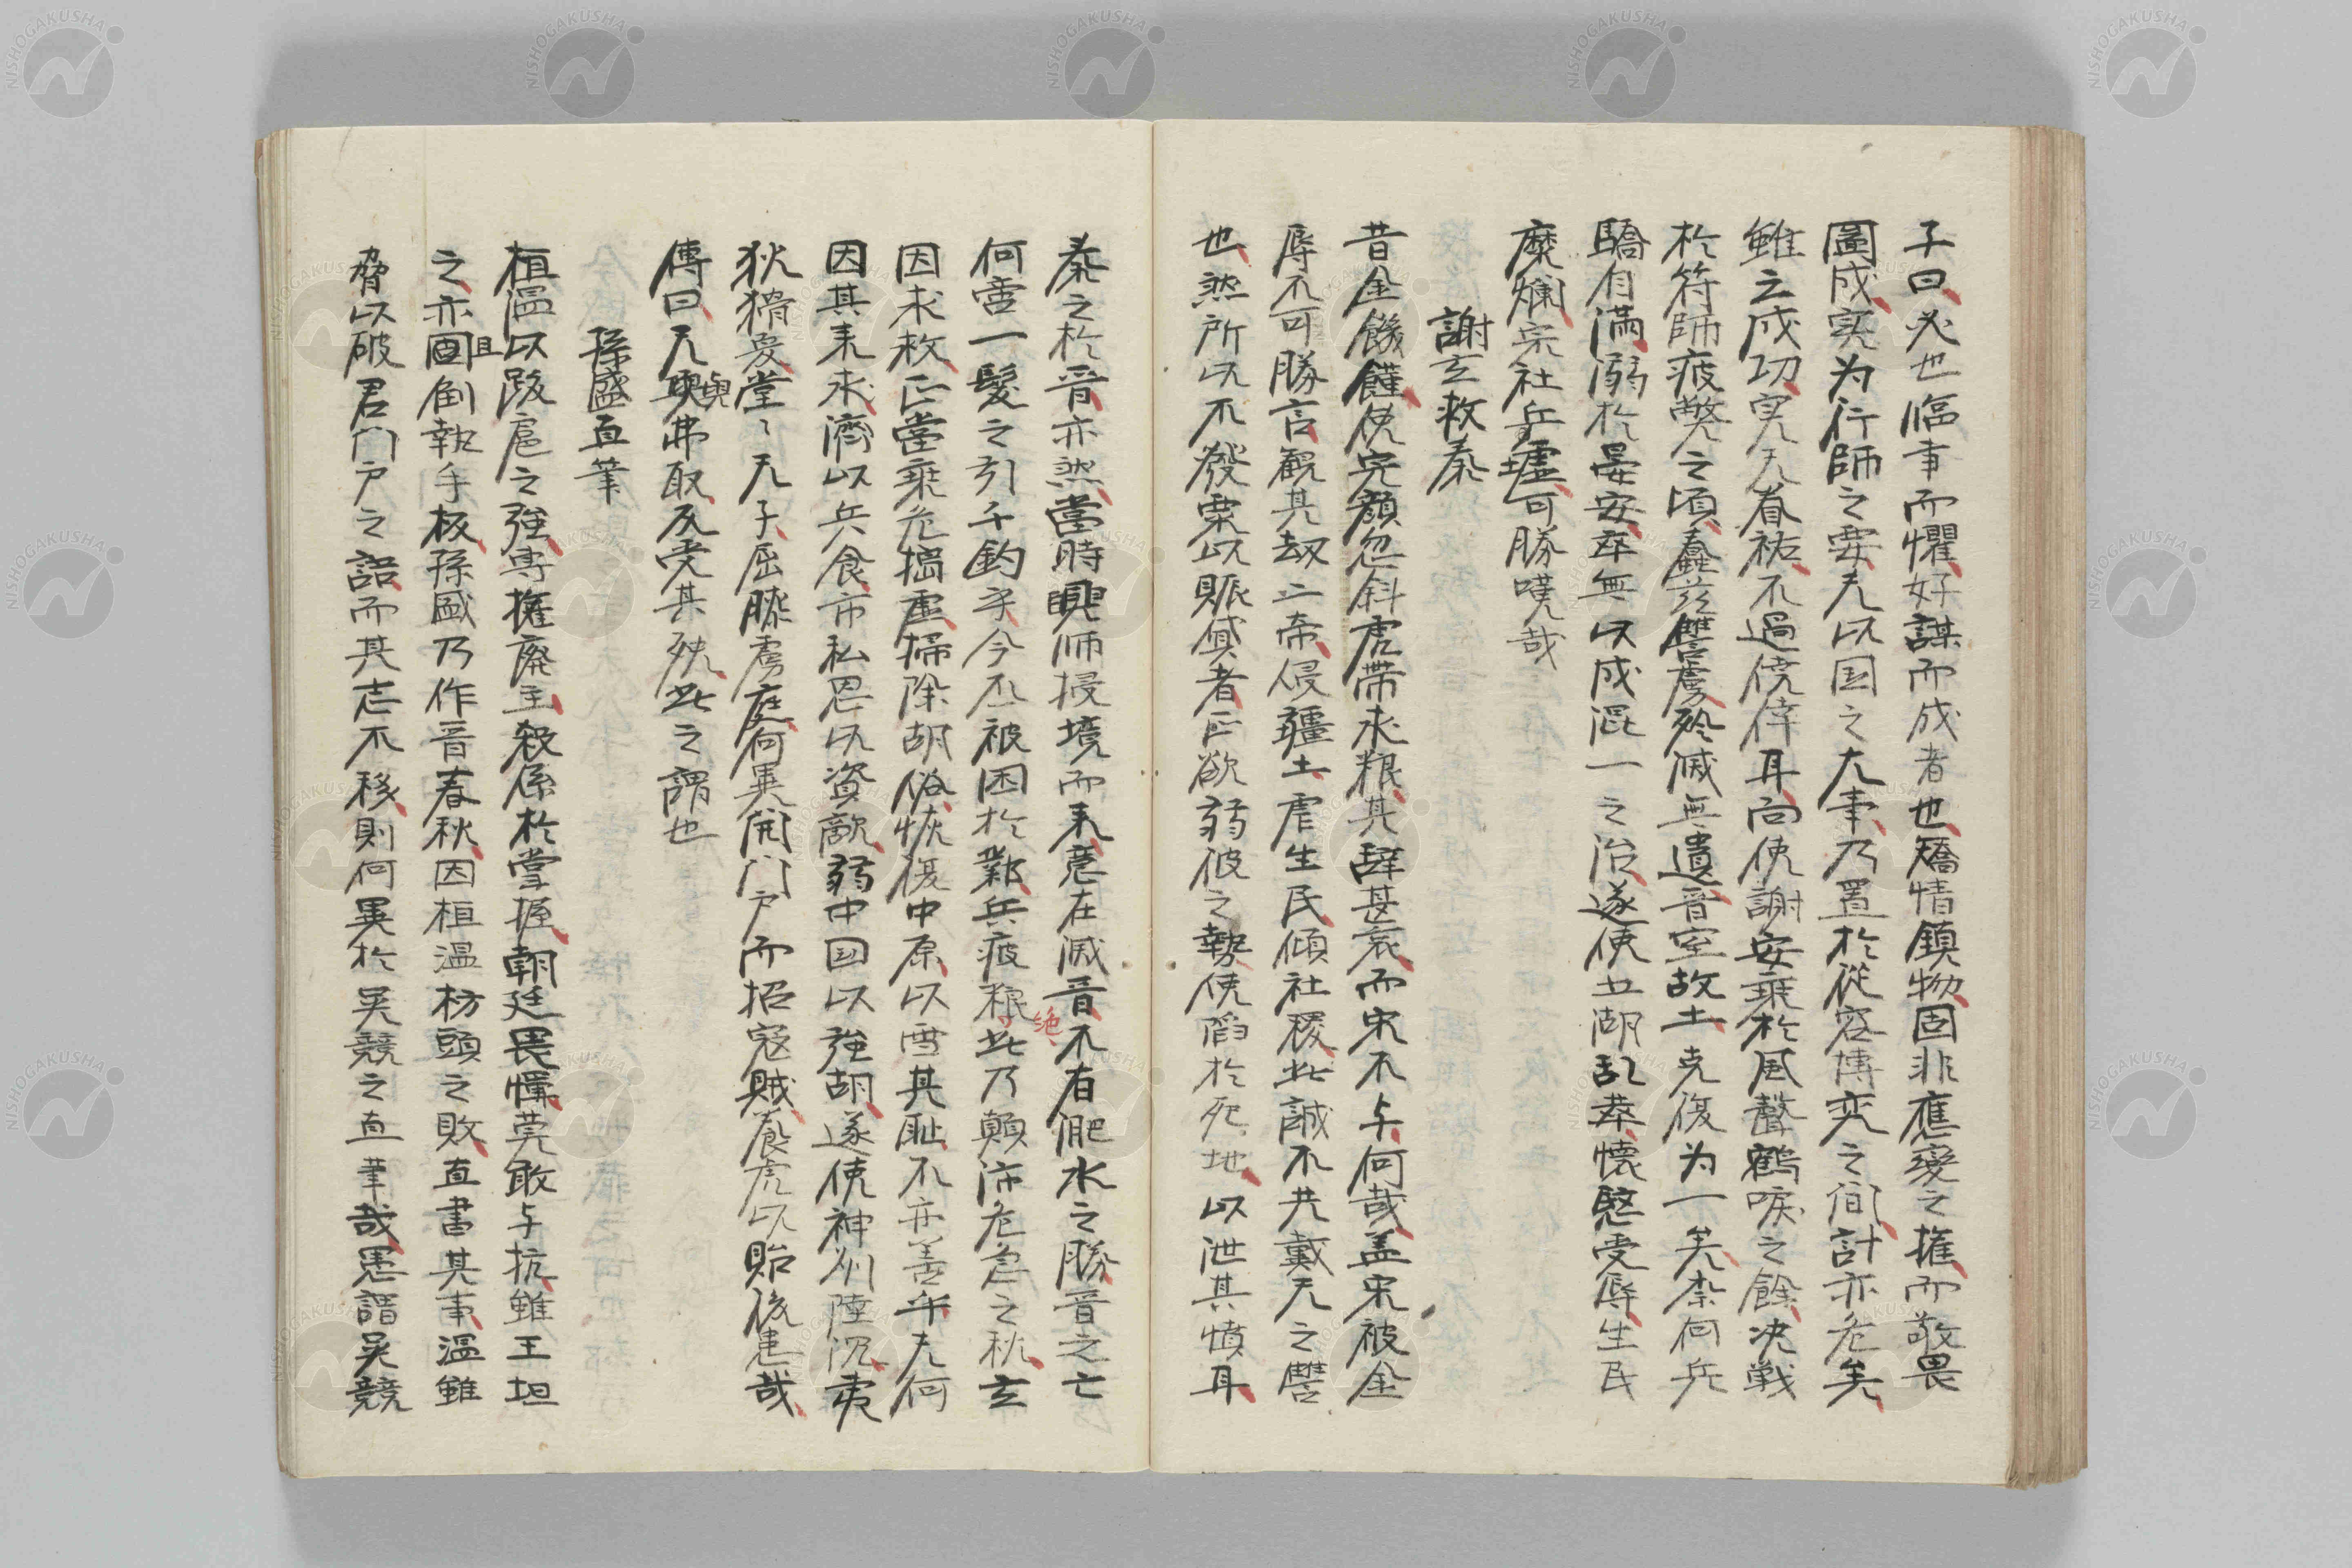 子曰必也臨事而懼好謀而成者也矯情鎮物固非應變之権而敬畏
圖成実为行師之要夫以国之大事乃置於從容博奕之间計亦危矣
雖之成功実天眷祐不過僥倖耳向使謝安乗於風聲鶴唳之餘决戦
於符師疲獘之頃蠢玆讐虜殄滅無遺晋室故土克復为一矣柰何兵
驕自满溺於晏安卒無以成混一之治遂使五湖乱華懷愍受辱生民
糜爛宗社丘墟可勝嘆哉
謝玄救秦
昔金饑饉使完顔忽斜虎帶求粮其辞甚哀而宋不与何哉盖宋被金
辱不可勝言観其刼二帝侵疆土虐生民傾社稷此誠不共戴天之讐
也然所以不發粟以賑貸者正欲弱彼之勢使陷於死地以泄其憤耳
秦之於晋亦然當時興师掠境而来意在滅晋不有淝水之勝晋之亡
何啻一髮之引千鈞乎今丕被困於鄴兵疲粮绝此乃顛沛危急之秋玄
因求救正當乗危搗虚掃除胡俗恢復中原以雪其耻不亦善乎夫何
因其来求濟以兵食市私恩以資敵弱中国以強胡遂使神州陸沉夷
狄猾夏堂〻天子屈膝虜庭何異開门户而招寇賊養虎以貽後患哉
傳曰天與弗取反受其殃此之謂也
孫盛直筆
桓温以跋扈之強専擅廃主殺係於掌握朝廷畏懼莫敢与抗雖王坦
之亦且倒執手板孫盛乃作晋春秋因桓温枋頭之敗直書其事温雖
脅以破君门户之語而其志不移則何異於吴競之直筆哉愚謂吴競